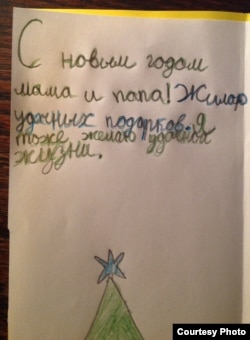 С новым годом
мама и папа! Жилаю
удачных подарков. Я
тоже желаю удачной
жизни.
Courtesy Photo